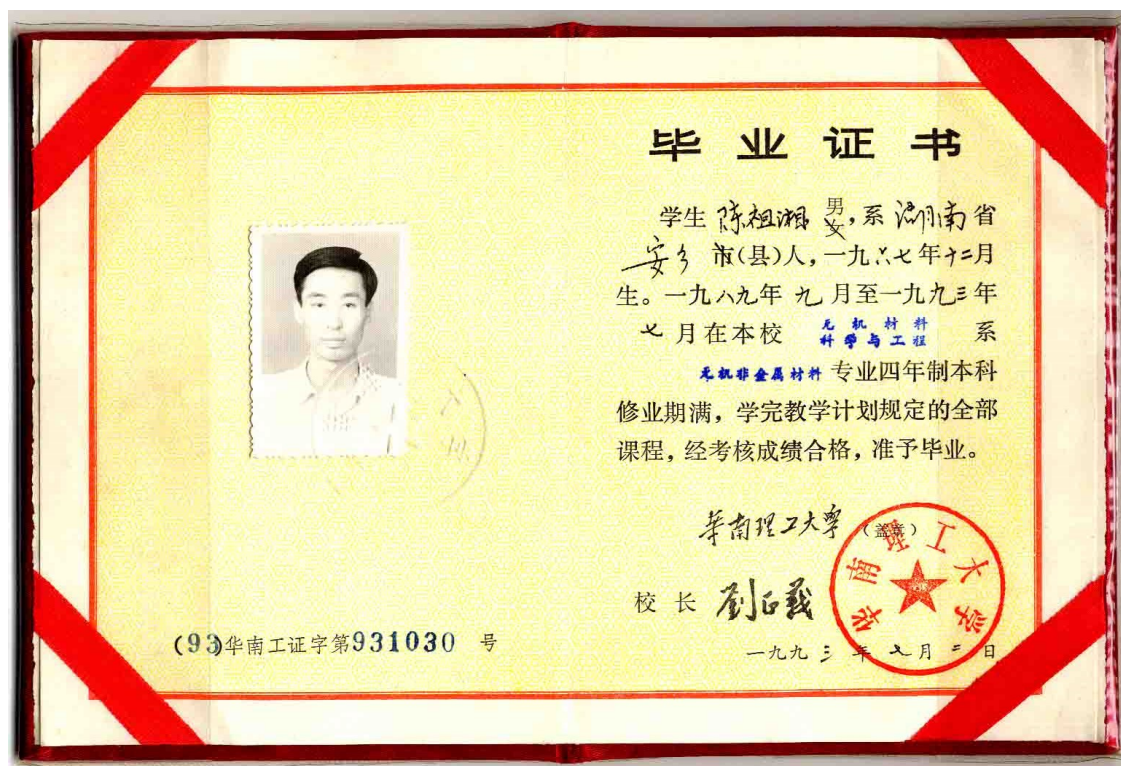 毕业证书
学生 陈祖湘 男女,系 湖南省
安乡 市(县)人,一九六七年十二月
生。一九八九年 九 月至一九九三年
七月在本校 无机材料科学与工程 系
无机非金属材料 专业四年制本科
修业期满,学完教学计划规定的全部
课程,经考核成绩合格,准予毕业。
华南理工大学 (盖章)
华南理工大学
校长 刘正义
一九九三年七月二日
(93)华南工证字第931030 号